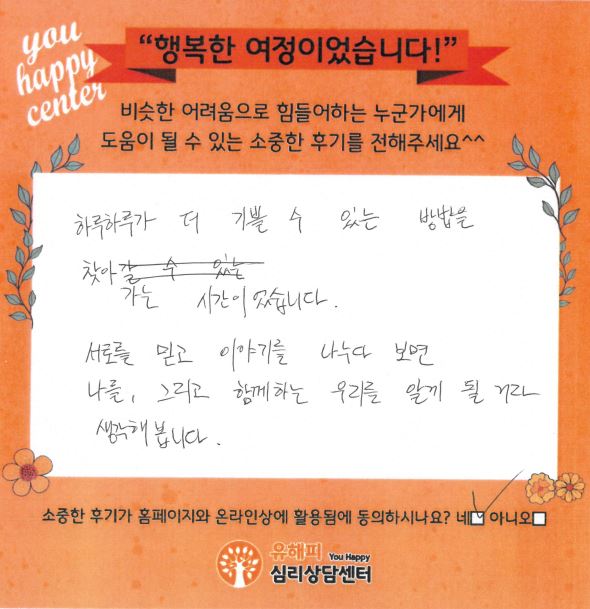 you
happy
center
“행복한 여정이었습니다!”
비슷한 어려움으로 힘들어하는 누군가에게
도움이 될 수 있는 소중한 후기를 전해주세요^^
하루하루가 더 기쁠 수 있는 방법을
찾아갈 수 있는
가는 시간이었습니다.
서로를 믿고 이야기를 나누다 보면
나를, 그리고 함께하는 우리를 알게 될 거라
생각해봅니다.
소중한 후기가 홈페이지와 온라인상에 활용됨에 동의하시나요? 네☑ 아니오☐
유해피 You Happy
심리상담센터